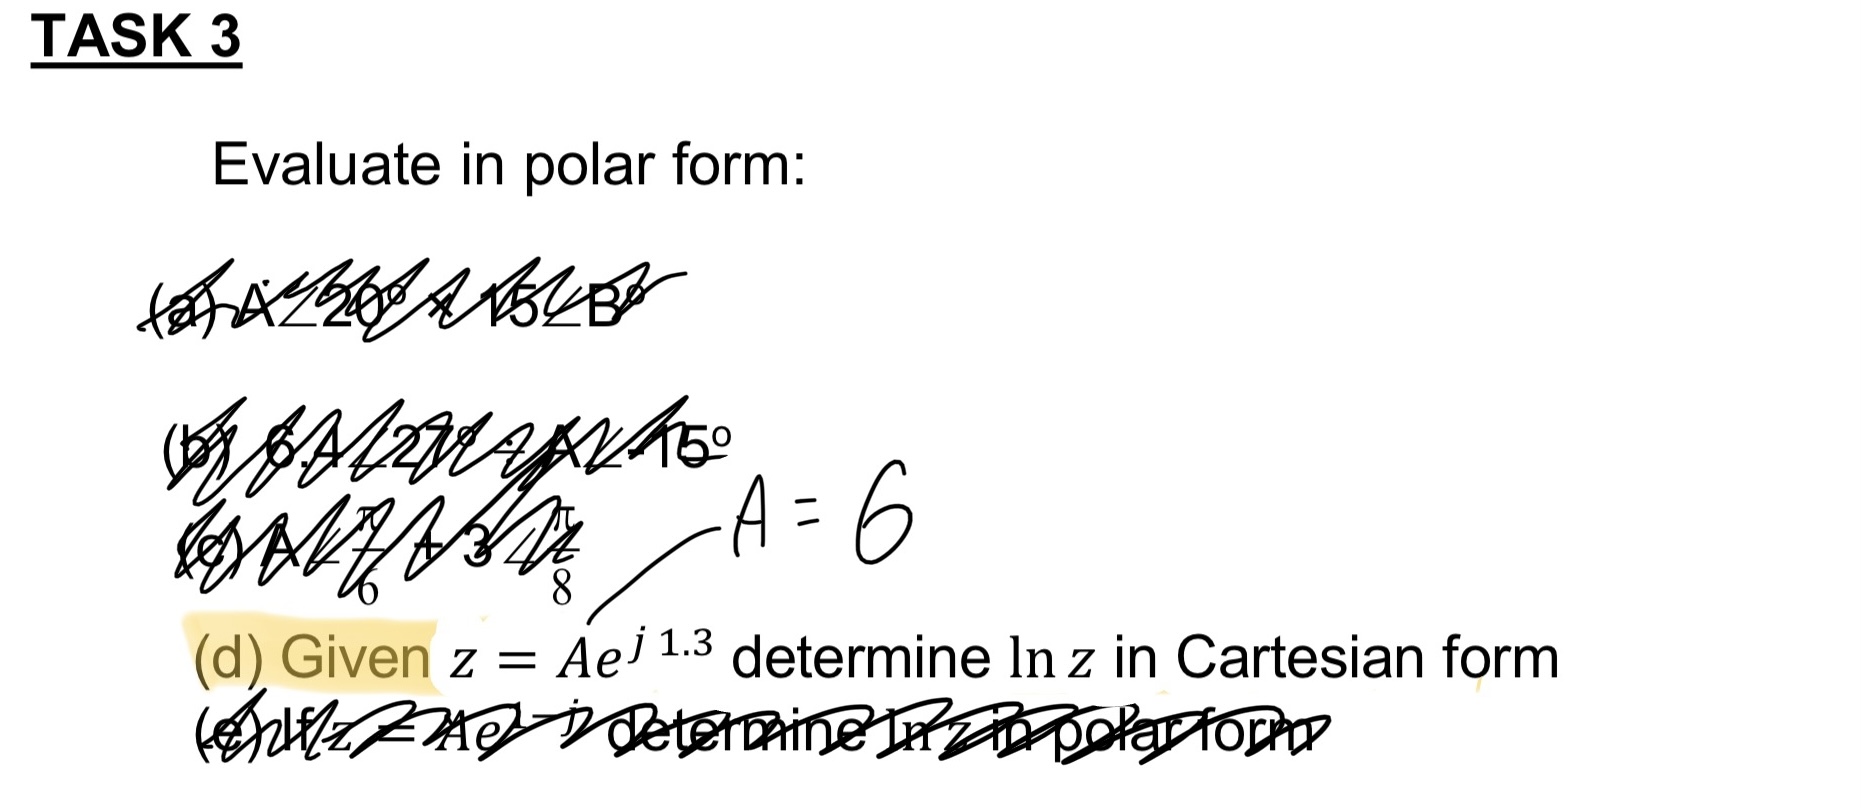 TASK 3
Evaluate in polar form:
(a) A∠20º × 15∠Bº
(b) 6.A∠27º ÷ A∠-15º
A = 6
(c) A∠π/6 + 3∠π/8
(d) Given z = Ae^{j 1.3} determine ln z in Cartesian form
(e) If z = Ae^{1-j} determine ln z in polar form